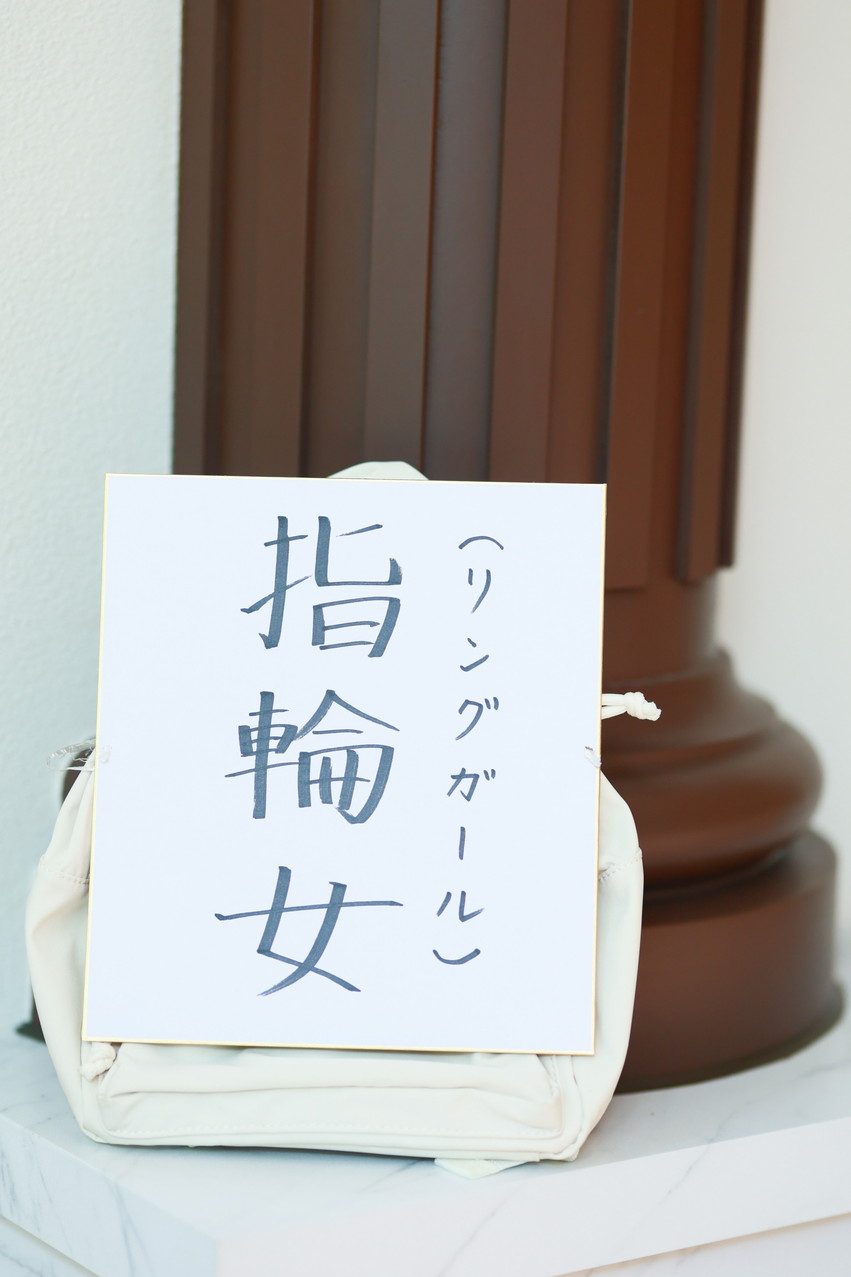 (リングガール)
指輪女